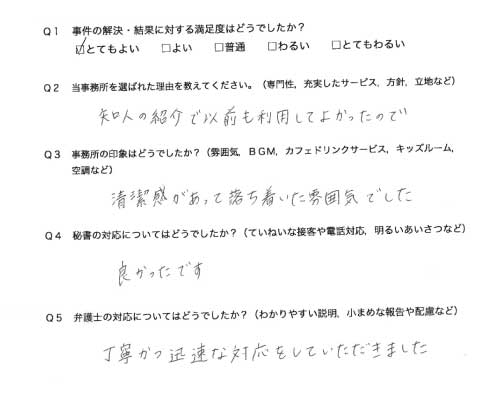 Q1 事件の解決・結果に対する満足度はどうでしたか？
☑とてもよい □よい □普通 □わるい □とてもわるい
Q2 当事務所を選ばれた理由を教えてください。（専門性，充実したサービス，方針，立地など）
知人の紹介で以前も利用してよかったので
Q3 事務所の印象はどうでしたか？（雰囲気，BGM，カフェドリンクサービス，キッズルーム，
空調など）
清潔感があって落ち着いた雰囲気でした
Q4 秘書の対応についてはどうでしたか？（ていねいな接客や電話対応，明るいあいさつなど）
良かったです
Q5 弁護士の対応についてはどうでしたか？（わかりやすい説明，小まめな報告や配慮など）
丁寧かつ迅速な対応をしていただきました